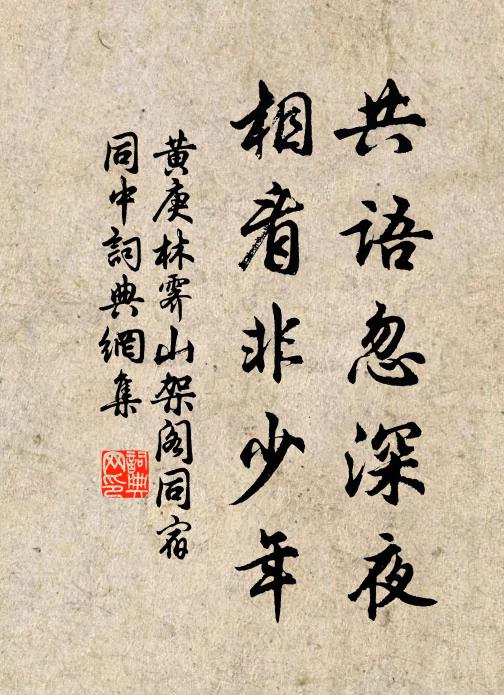 共語忽深夜
相看非少年
黄庚林霽山架阁同宿
同中詞典網集
詞典網印